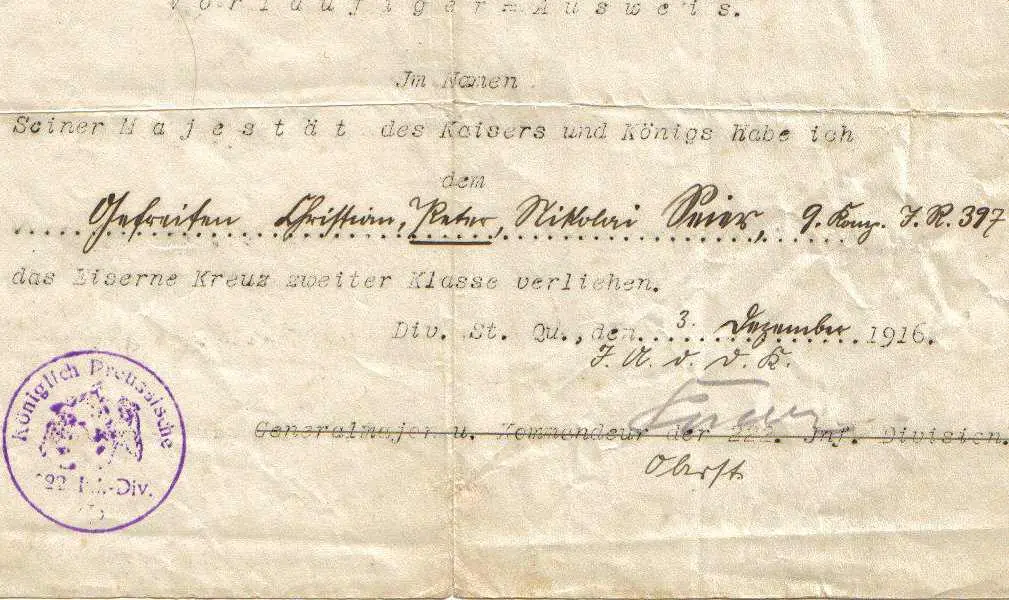 Vorläufiger=Ausweis.
Jm Namen
Seiner Majestät des Kaisers und Königs habe ich
dem
Gefreiten Christian, Peter, Nikolai Seier, 9. Komp. J.R. 397
das Eiserne Kreuz zweiter Klasse verliehen.
Div. St. Qu., den 3. Dezember 1916.
J. A. d. D. K.
Generalmajor u. Kommandeur der 222. Jnf. Division.
Oberst
Königlich Preussische
222 Inf.-Div.